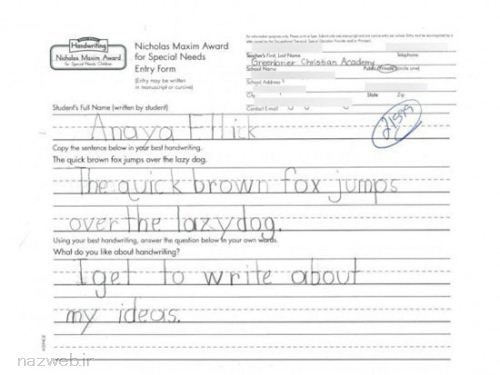 Handwriting
Nicholas Maxim Award
for Special Needs Children
Nicholas Maxim Award
for Special Needs
Entry Form
(Entry may be written
in manuscript or cursive)
Teacher's First, Last Name
Telephone
Greenbrier Christian Academy
School Name
Public/Private (circle one)
School Address
City
State
Zip
Contact E-mail
21599
Student's Full Name (written by student)
Anaya Ellick
Copy the sentence below in your best handwriting.
The quick brown fox jumps over the lazy dog.
The quick brown fox jumps
over the lazy dog.
Using your best handwriting, answer the question below in your own words.
What do you like about handwriting?
I get to write about
my ideas.
nazweb.ir